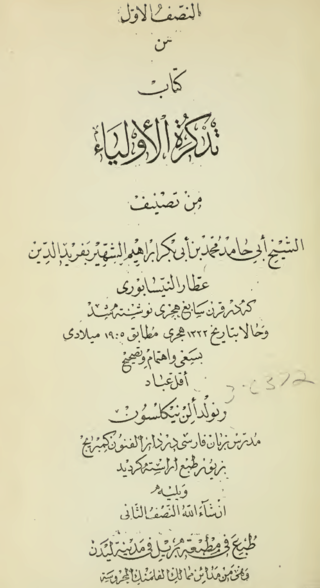 النصف الاول
من
كتاب
تذكرة الأولياء
من تصنيف
الشيخ أبي حامد محمد بن أبي بكر ابراهيم الشهير بفريد الدين
عطار النيسابوري
كه در قرن سابع هجري نوشته شد
وحالا بتاريخ ١٣٢٢ هجري مطابق ١٩٠٥ ميلادي
بسعي واهتمام وتصحيح
أقل عباد
رنولد ألن نيكلسون
مدرس زبان فارسي در دار الفنون كمبريج
بزيور طبع آراسته كرديد
ويليه
انشاء الله النصف الثاني
طبع في مطبعة بريل في مدينة ليدن
من ممالك الفلمنك المحروسة